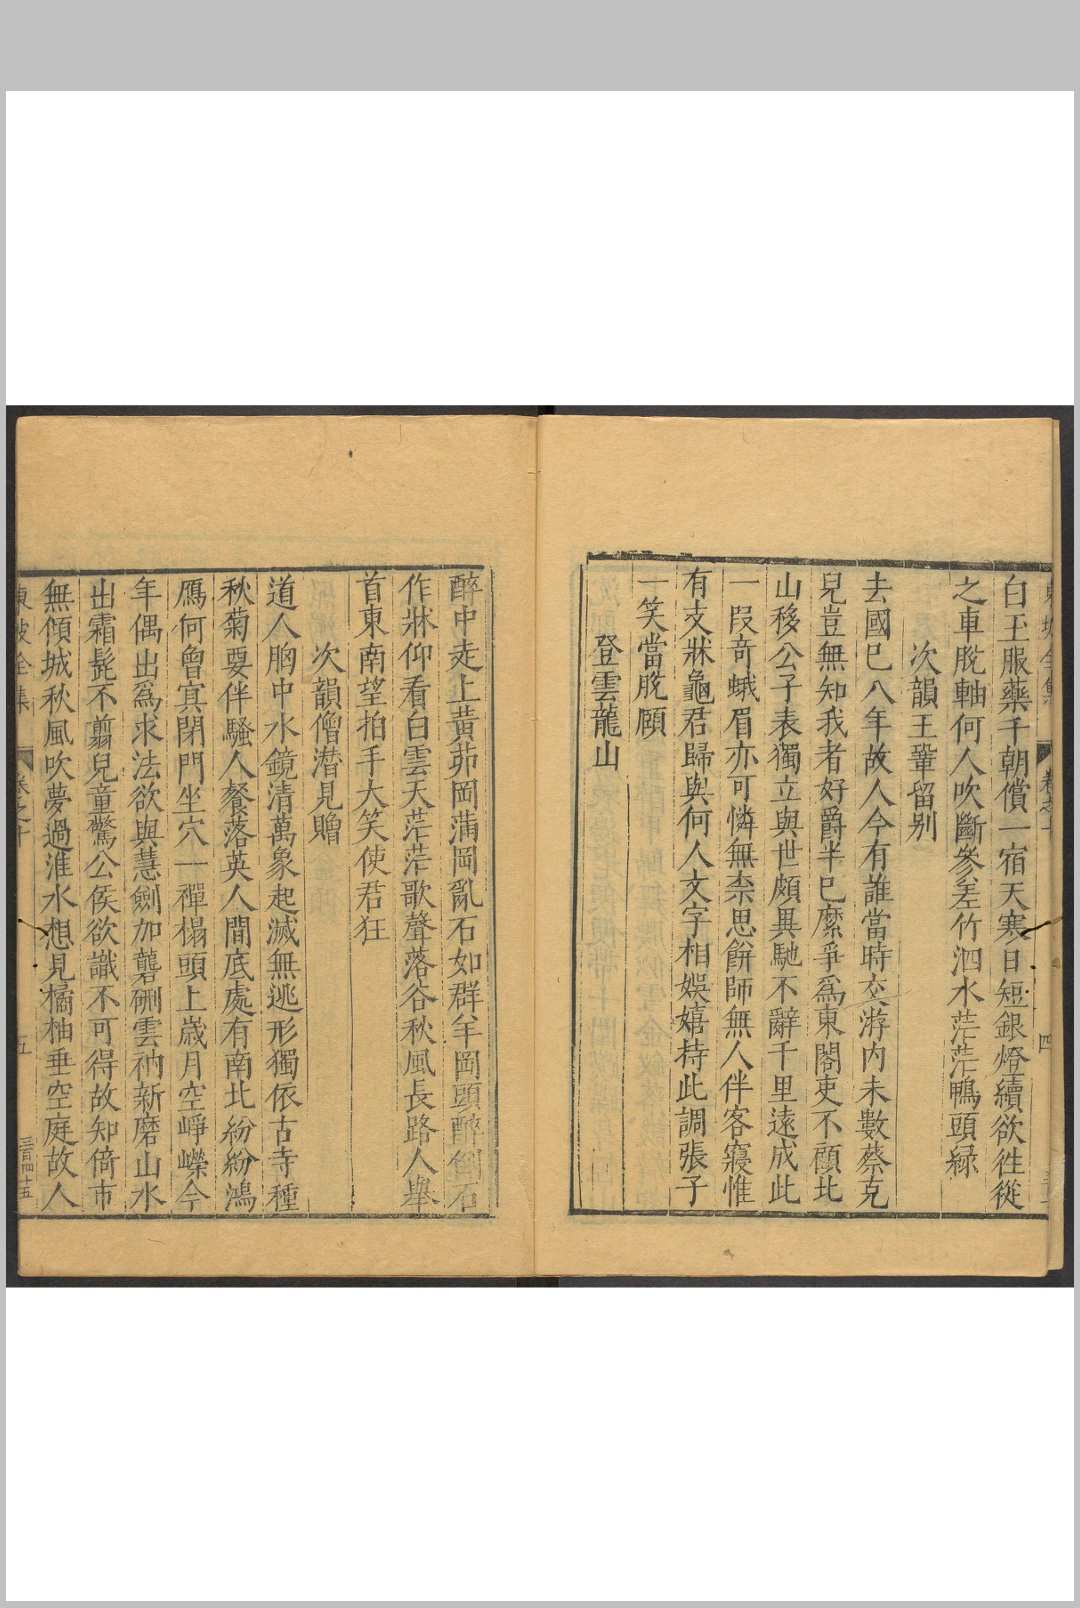 白玉服藥千朝償一宿天寒日短銀燈續欲徃從
之車脫軸何人吹斷參差竹泗水茫茫鴨頭綠
次韻王鞏留別
去國已八年故人今有誰當時交游內未數蔡克
兒豈無知我者好爵半已縻爭爲東閣吏不顧北
山移公子表獨立與世頗異馳不辭千里遠成此
一叚竒蛾眉亦可憐無柰思餅師無人伴客寢惟
有支牀龜君歸與何人文字相娛嬉持此調張子
一笑當脫頤
登雲龍山
醉中走上黃茆岡滿岡亂石如群羊岡頭醉倒石
作牀仰看白雲天茫茫歌聲落谷秋風長路人舉
首東南望拍手大笑使君狂
次韻僧潜見贈
道人胸中水鏡清萬象起滅無逃形獨依古寺種
秋菊要伴騷人餐落英人間底處有南北紛紛鴻
鴈何曾㝠閉門坐穴一禪榻頭上歲月空崢嶸今
年偶出爲求法欲與慧劍加礱硎雲衲新磨山水
出霜髭不翦兒童驚公侯欲識不可得故知倚市
無傾城秋風吹夢過淮水想見橘柚垂空庭故人
東坡全集 卷之十 五